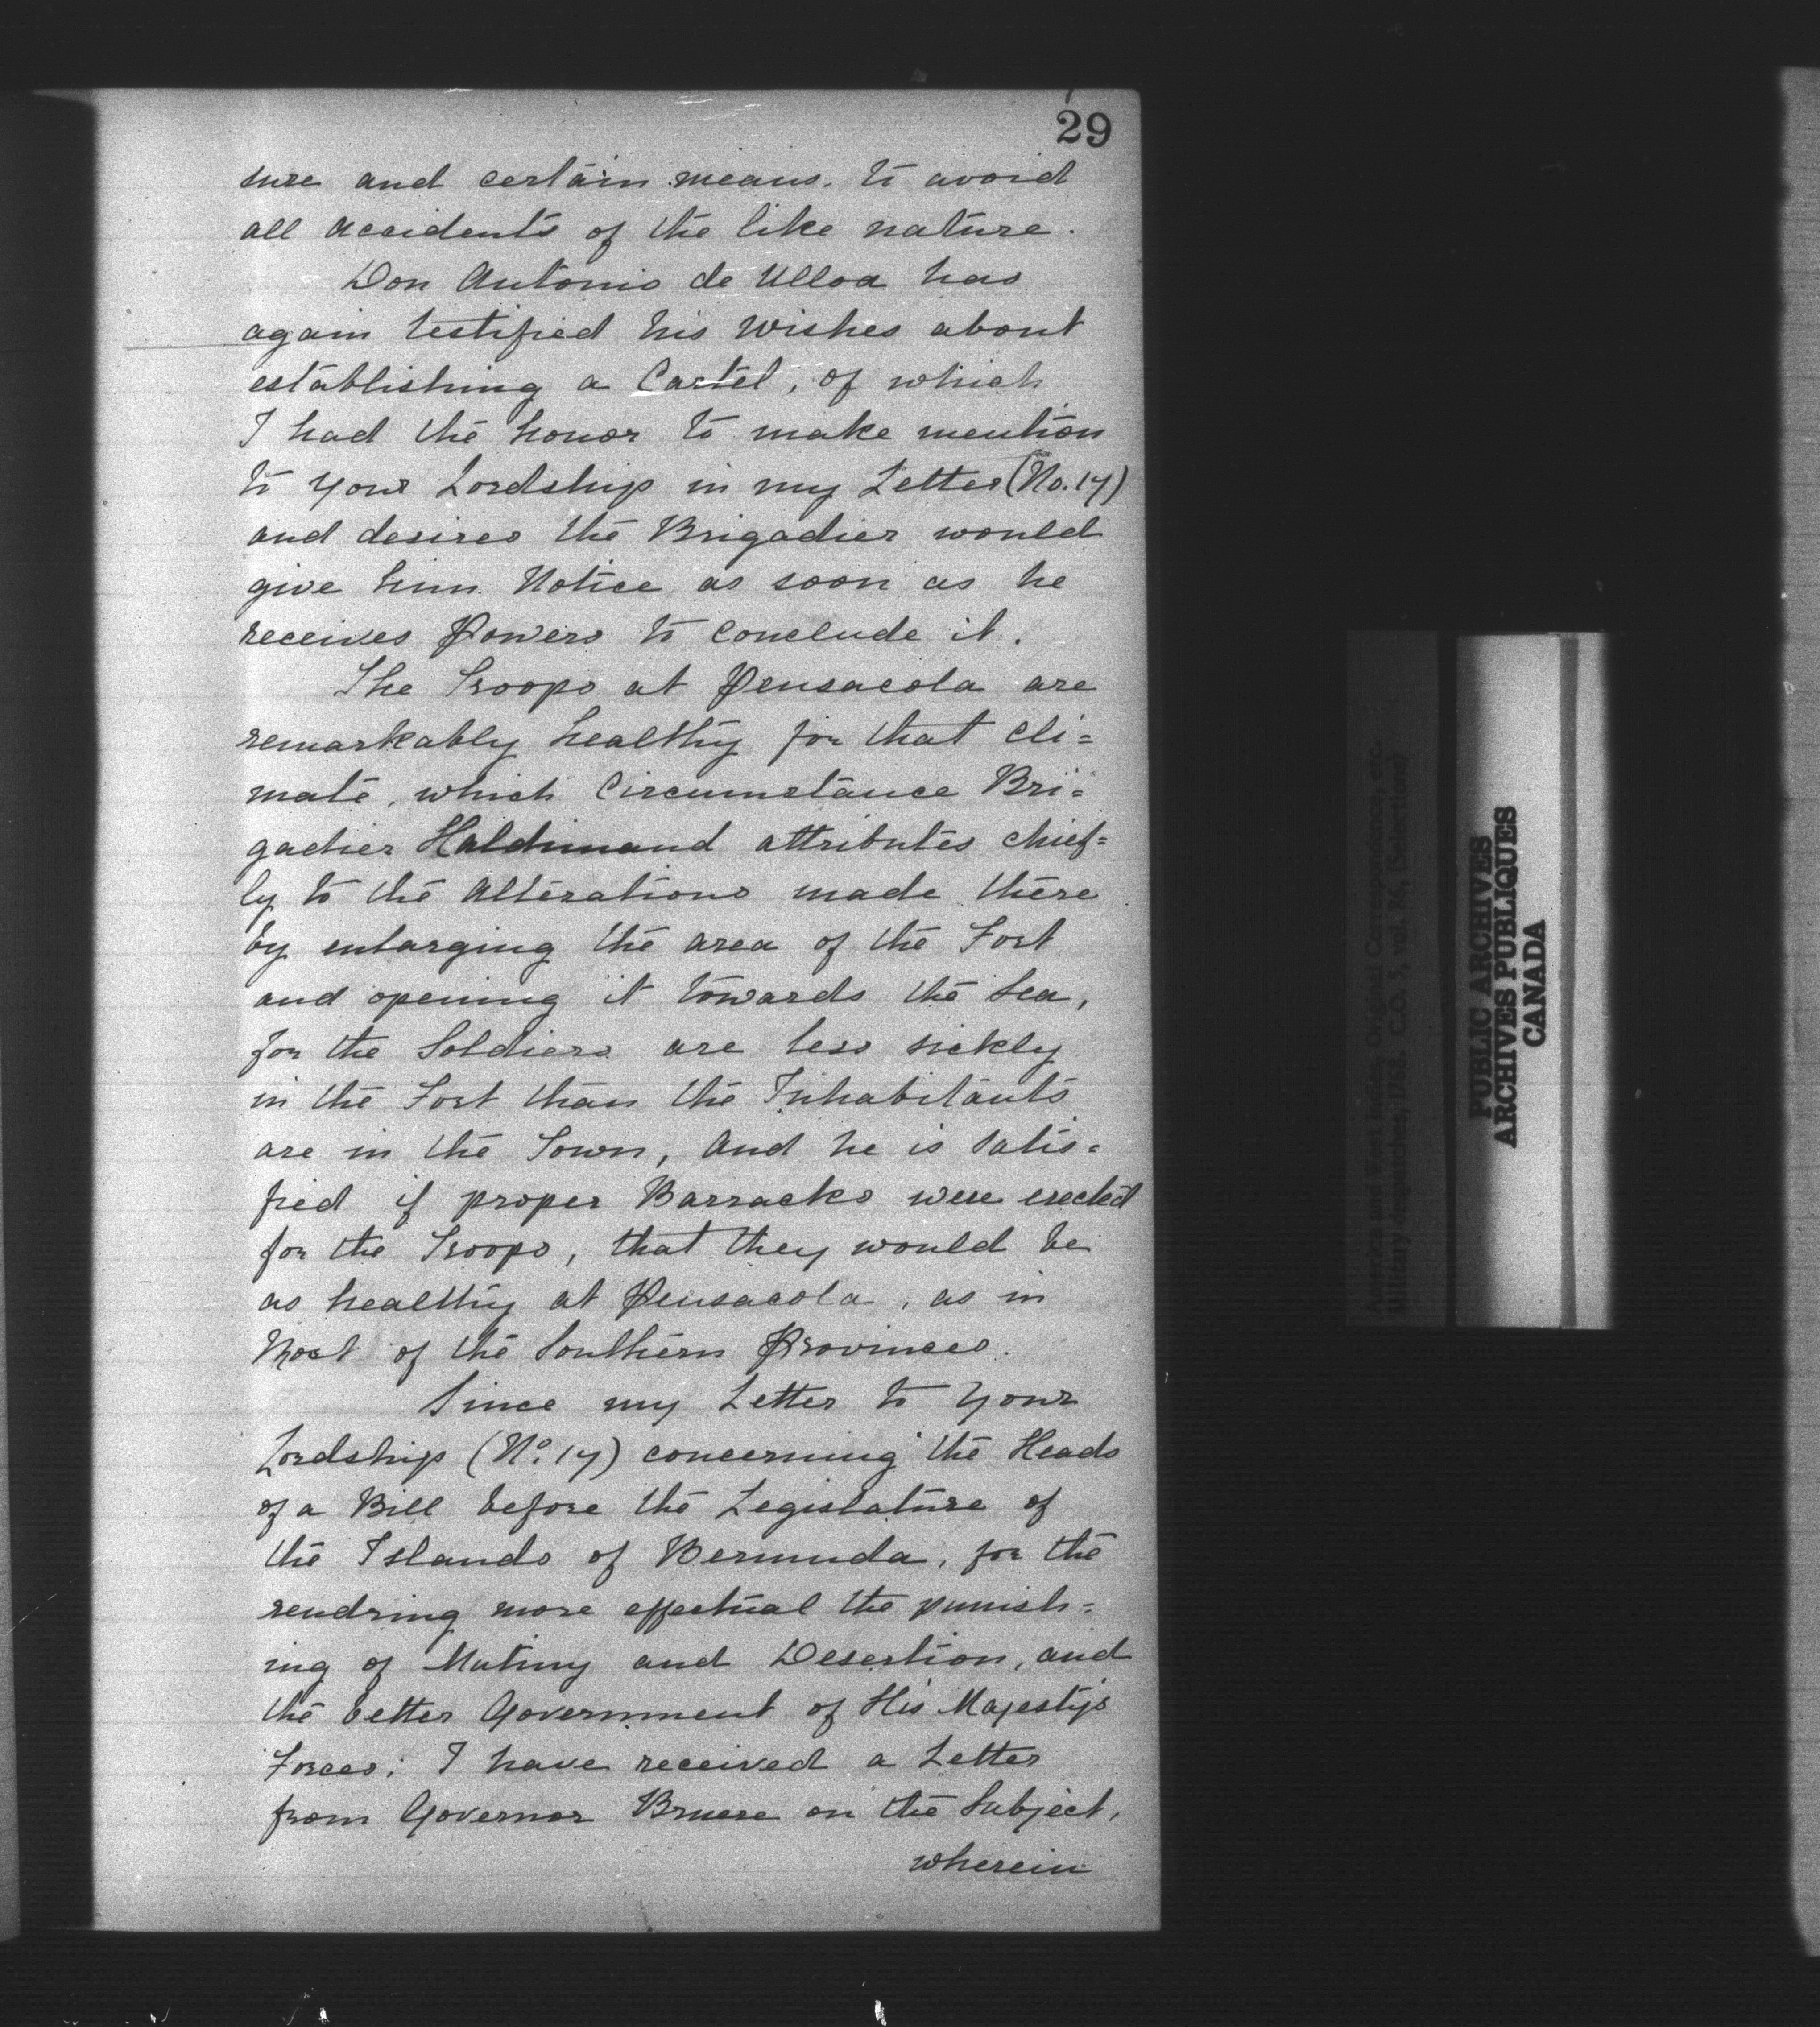 29
sure and certain means. to avoid
all accidents of the like nature.
Don Antonio de Ulloa has
again testified his Wishes about
establishing a Cartel, of which
I had the honor to make mention
to Your Lordship in my Letter (No. 17)
and desires the Brigadier would
give him Notice as soon as he
receives Powers to conclude it.
The Troops at Pensacola are
remarkably healthy for that Cli=
mate, which Circumstance Bri=
gadier Haldimand attributes chief=
ly to the Alterations made there
by enlarging the area of the Fort
and opening it towards the Sea,
for the Soldiers are less sickly
in the Fort than the Inhabitants
are in the Town, and he is Satis=
fied if proper Barracks were erected
for the Troops, that they would be
as healthy at Pensacola, as in
Most of the Southern Provinces.
Since my Letter to Your
Lordship (No. 17) concerning the Heads
of a Bill before the Legislature of
the Islands of Bermuda, for the
rendring more effectual the punish=
ing of Mutiny and Desertion, and
the better Government of His Majesty's
Forces; I have received a Letter
from Governor Bruere on the Subject,
wherein
America and West Indies, Original Correspondence, etc.
Military despatches, 1768. C.O. 5, vol. 86, (Selections)
PUBLIC ARCHIVES
ARCHIVES PUBLIQUES
CANADA